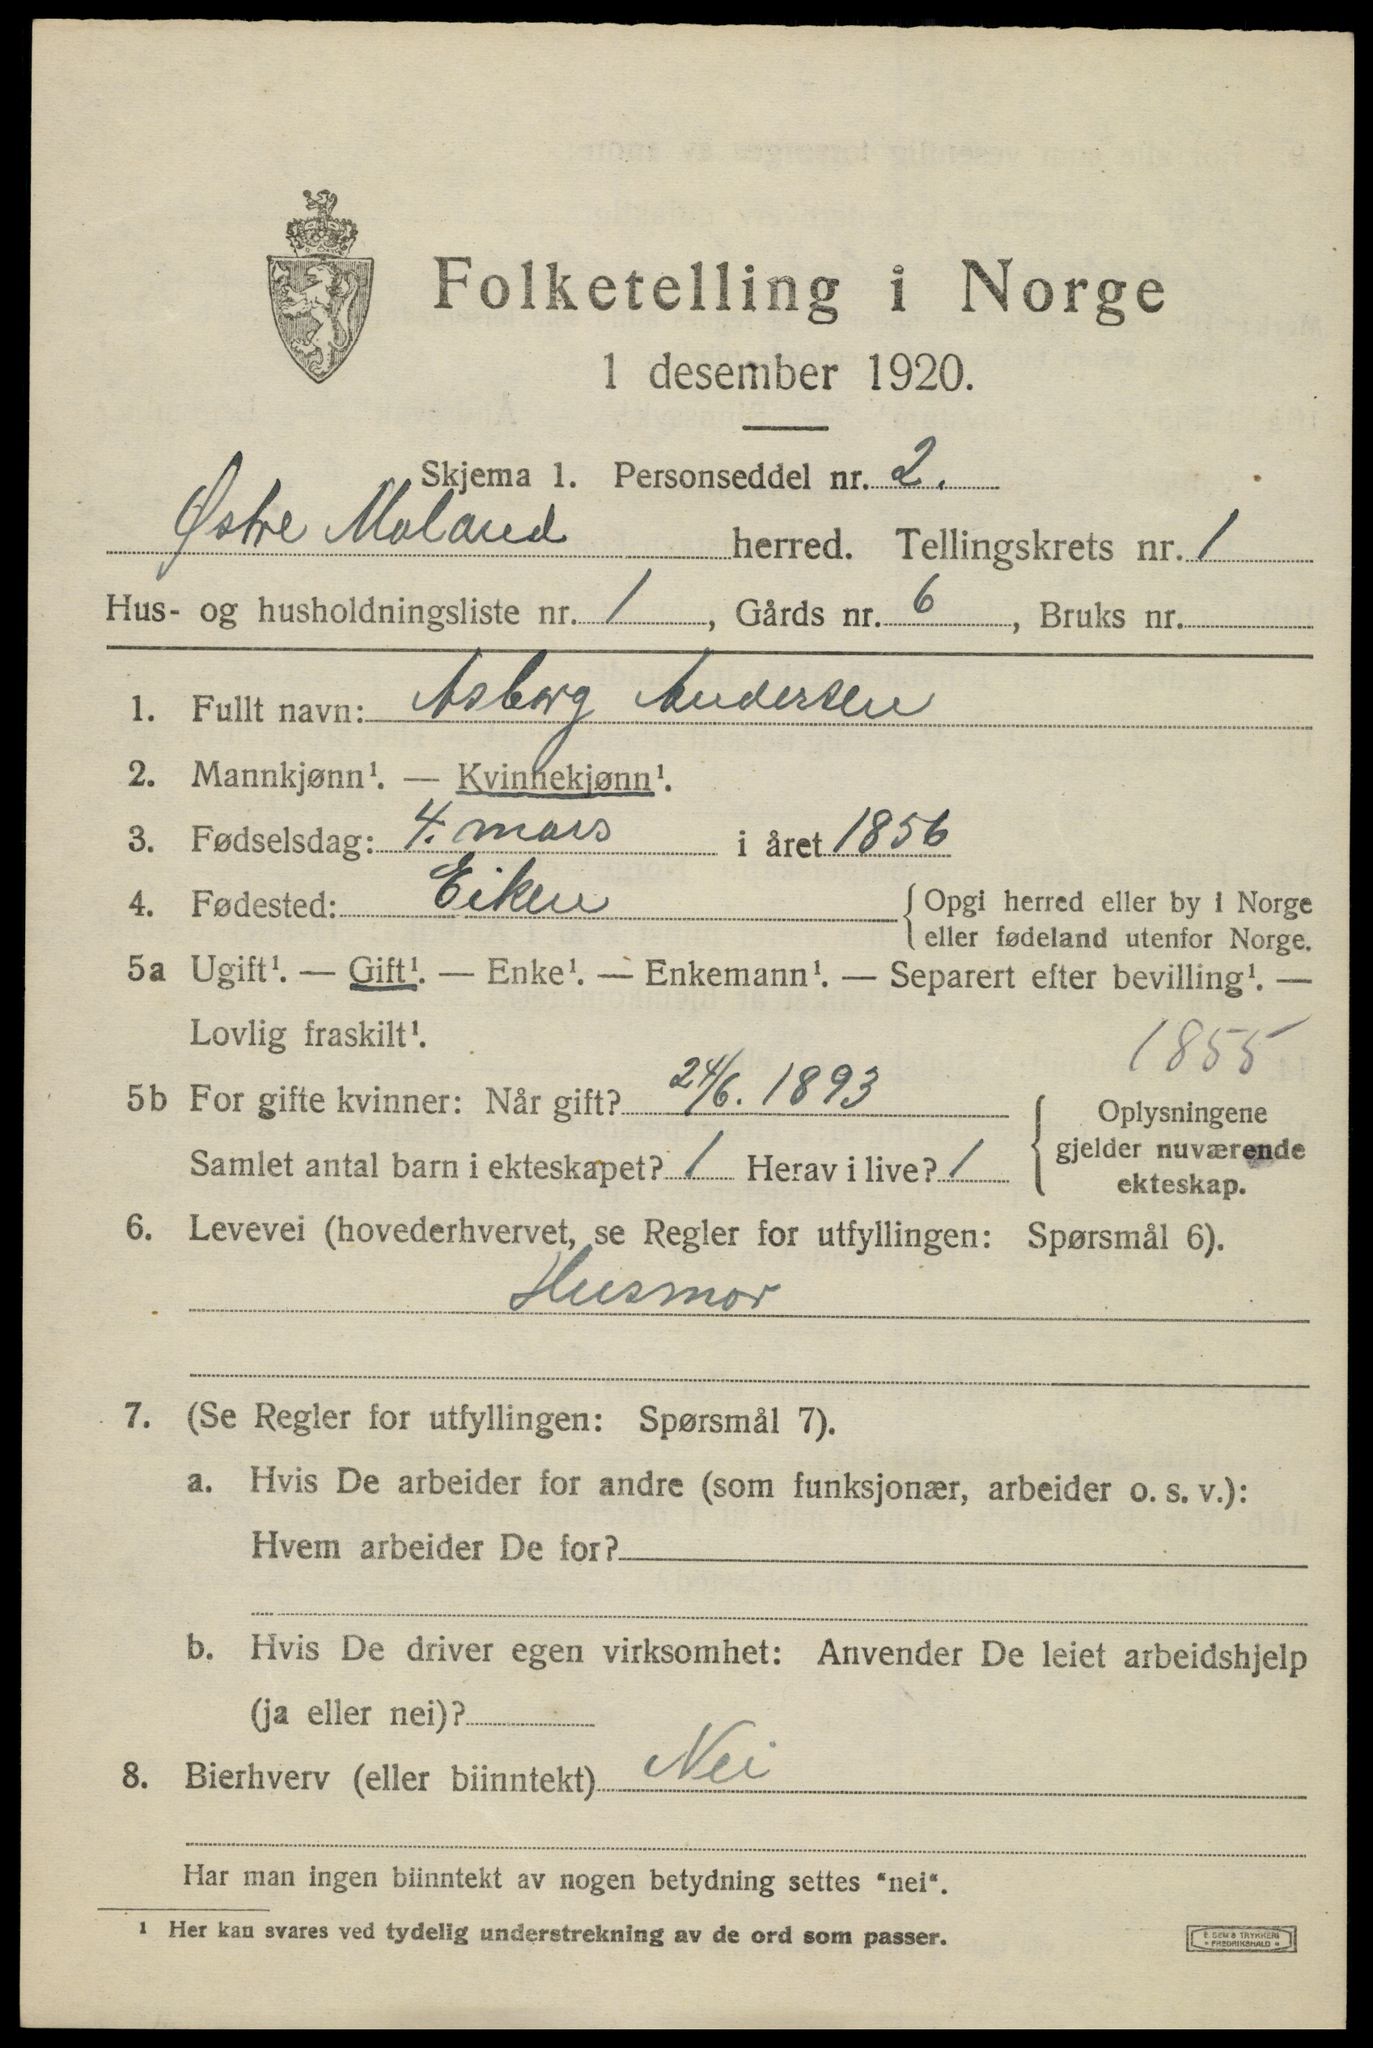 Folketelling i Norge
1 desember 1920.
Skjema 1. Personseddel nr. 2.
Østre Moland herred. Tellingskrets nr. 1
Hus- og husholdningsliste nr. 1, Gårds nr. 6, Bruks nr.
1. Fullt navn: Asborg Andersen
2. Mannkjønn¹. — Kvinnekjønn¹.
3. Fødselsdag: 4. mars i året 1856
4. Fødested: Eiken { Opgi herred eller by i Norge
eller fødeland utenfor Norge.
5a Ugift¹. — Gift¹. — Enke¹. — Enkemann¹. — Separert efter bevilling¹. —
Lovlig fraskilt¹. 1855
5b For gifte kvinner: Når gift? 24/6. 1893 { Oplysningene
gjelder nuværende
Samlet antal barn i ekteskapet? 1 Herav i live? 1 ekteskap.
6. Levevei (hovederhvervet, se Regler for utfyllingen: Spørsmål 6).
Husmor
7. (Se Regler for utfyllingen: Spørsmål 7).
a. Hvis De arbeider for andre (som funksjonær, arbeider o. s. v.):
Hvem arbeider De for?
b. Hvis De driver egen virksomhet: Anvender De leiet arbeidshjelp
(ja eller nei)?
8. Bierhverv (eller biinntekt) Nei
Har man ingen biinntekt av nogen betydning settes "nei".
¹ Her kan svares ved tydelig understrekning av de ord som passer.
E. SEM'S TRYKKERI
• FREDRIKSHALD •